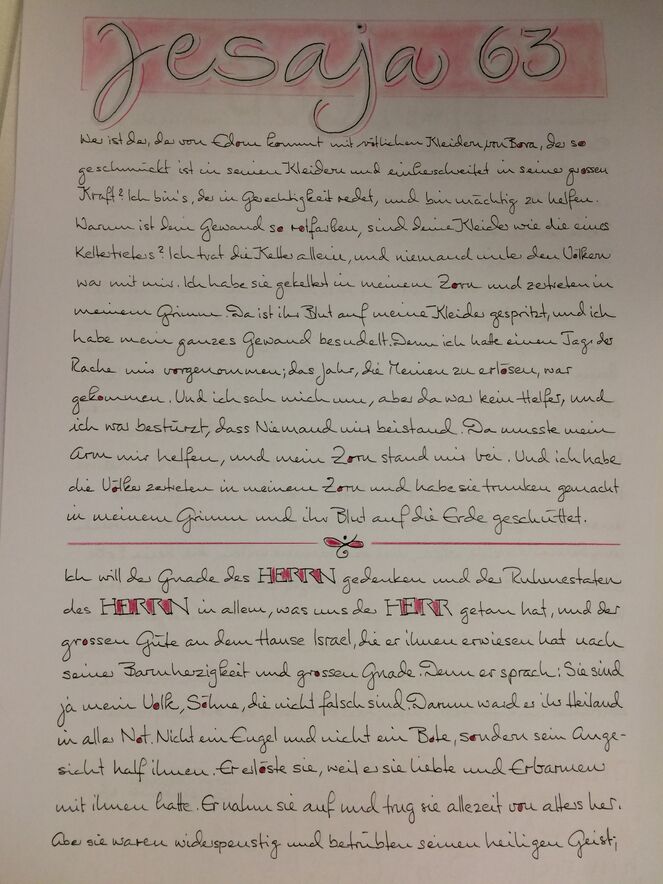 Jesaja 63
Wer ist der, der von Edom kommt mit rötlichen Kleidern von Bozra, der so
geschmückt ist in seinen Kleidern und einherschreitet in seiner grossen
Kraft? Ich bin's, der in Gerechtigkeit redet, und bin mächtig zu helfen.
Warum ist dein Gewand so rotfarben, sind deine Kleider wie die eines
Keltertreters? Ich trat die Kelter allein, und niemand unter den Völkern
war mit mir. Ich habe sie gekeltert in meinem Zorn und zertreten in
meinem Grimm. Da ist ihr Blut auf meine Kleider gespritzt, und ich
habe mein ganzes Gewand besudelt. Denn ich hatte einen Tag der
Rache mir vorgenommen; das Jahr, die Meinen zu erlösen, war
gekommen. Und ich sah mich um, aber da war kein Helfer, und
ich war bestürzt, dass Niemand mir beistand. Da musste mein
Arm mir helfen, und mein Zorn stand mir bei. Und ich habe
die Völker zertreten in meinem Zorn und habe sie trunken gemacht
in meinem Grimm und ihr Blut auf die Erde geschüttet.
Ich will der Gnade des HERRN gedenken und der Ruhmestaten
des HERRN in allem, was uns der HERR getan hat, und der
grossen Güte an dem Hause Israel, die er ihnen erwiesen hat nach
seiner Barmherzigkeit und grossen Gnade. Denn er sprach: Sie sind
ja mein Volk, Söhne, die nicht falsch sind. Darum ward er ihr Heiland
in aller Not. Nicht ein Engel und nicht ein Bote, sondern sein Ange-
sicht half ihnen. Er erlöste sie, weil er sie liebte und Erbarmen
mit ihnen hatte. Er nahm sie auf und trug sie allezeit von alters her.
Aber sie waren widerspenstig und betrübten seinen heiligen Geist;